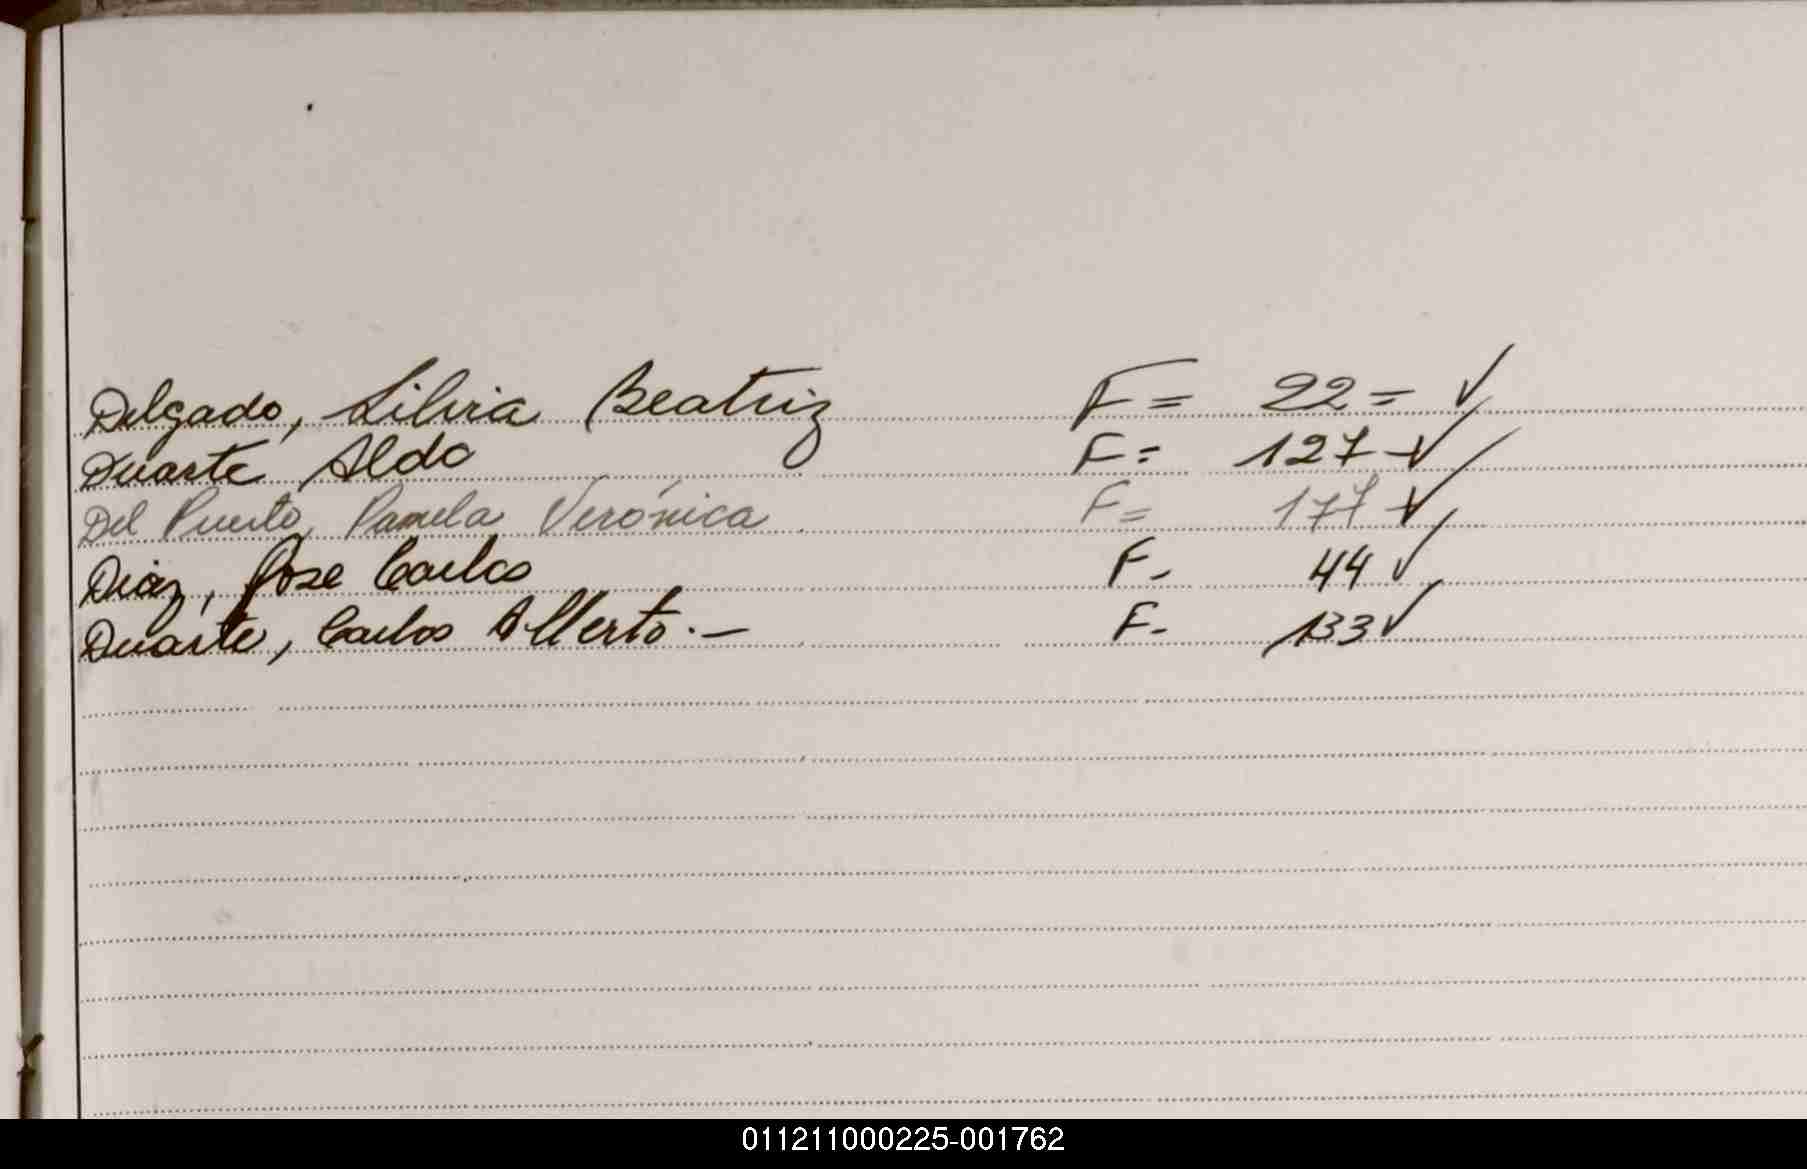 Delgado, Silvia Beatriz F= 22= ✓
Duarte Aldo F= 127- ✓
Del Puerto, Pamela Verónica F= 177- ✓
Diaz, Jose Carlos F- 44 ✓
Duarte, Carlos Alberto.- F- 133 ✓
011211000225-001762